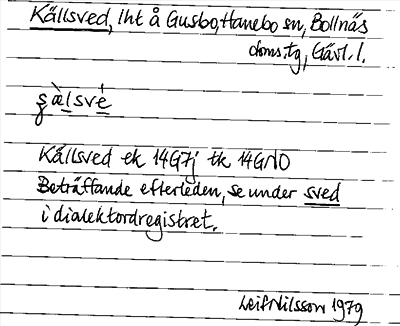 Källsved, lht å Gusbo, Hanebo sn, Bollnäs
doms.tg, Gävl. l.
şæ̀lsvé
Källsved ek 14G7j tk 14GNO
Beträffande efterleden, se under sved
i dialektordregistret.
Leif Nilsson 1979